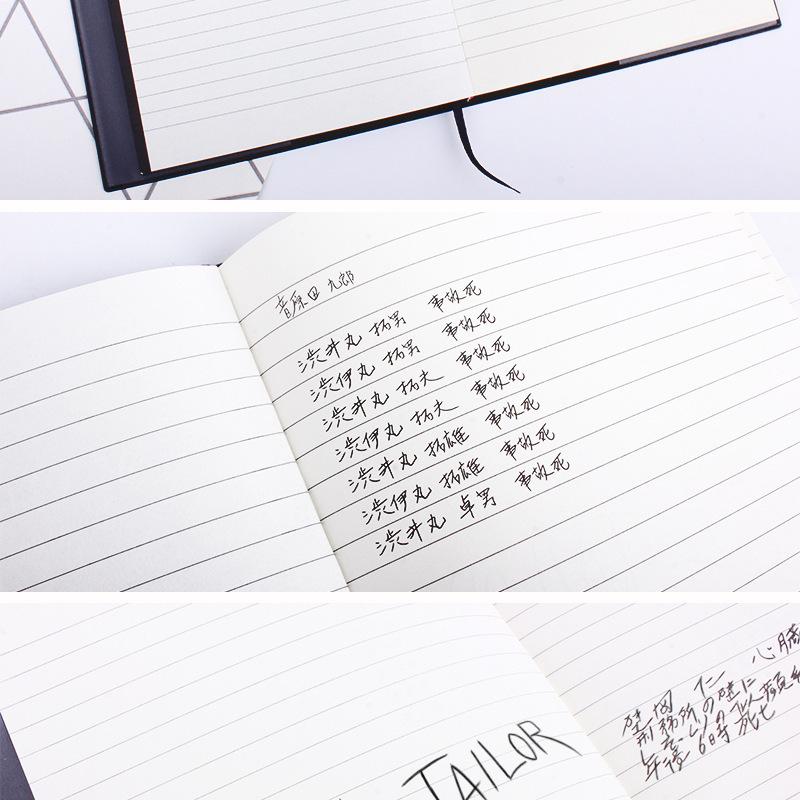 音原田 九郎
渋井丸 拓男 事故死
渋伊丸 拓男 事故死
渋井丸 拓夫 事故死
渋伊丸 拓夫 事故死
渋井丸 拓雄 事故死
渋伊丸 拓雄 事故死
渋井丸 卓男 事故死
TAILOR
仁 心臓
刑務所の壁に
午後6時死亡